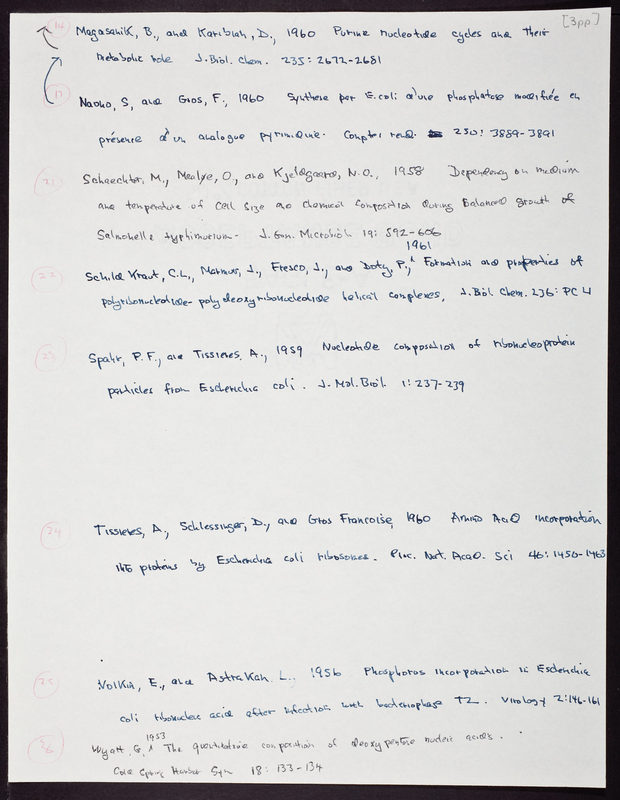 [3pp]
Magasanik, B., and Karibian, D., 1960 Purine nucleotide cycles and their
metabolic role J. Biol. Chem. 235: 2672-2681
17
Naono, S, and Gros, F., 1960 Synthese par E. coli d'une phosphatase modifiée en
présence d'un analogue pyrimidique. Comptes rend. 250: 3889-3891
21
Schaechter, M., Maaløe, O., and Kjeldgaard, N.O., 1958 Dependency on medium
and temperature of cell size and chemical composition during balanced growth of
Salmonella typhimurium. J. Gen. Microbiol 19: 592-606
1961
22
Schild Kraut, C.L., Marmur, J., Fresco, J., and Doty, P., Formation and properties of
polyribonucleotide-polydeoxyribonucleotide helical complexes, J. Biol. Chem. 236: PC 4
23
Spahr, P.F., and Tissieres, A., 1959 Nucleotide composition of ribonucleoprotein
particles from Escherichia coli. J. Mol. Biol. 1: 237-239
24
Tissieres, A., Schlessinger, D., and Gros Francoise, 1960 Amino Acid incorporation
into proteins by Escherichia coli ribosomes. Proc. Nat. Acad. Sci 46: 1450-1463
25
Volkin, E., and Astrakan L., 1956 Phosphorus incorporation in Escherichia
coli ribonucleic acid after infection with bacteriophage T2. Virology 2: 146-161
26
1953
Wyatt, G., The quantitative composition of deoxypentose nucleic acids.
Cold Spring Harbor Sym 18: 133-134